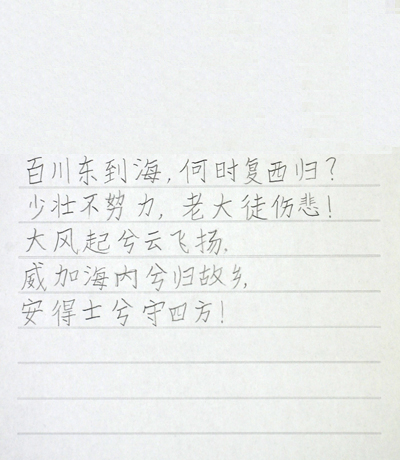 百川东到海,何时复西归?
少壮不努力,老大徒伤悲!
大风起兮云飞扬.
威加海内兮归故乡,
安得士兮守四方!